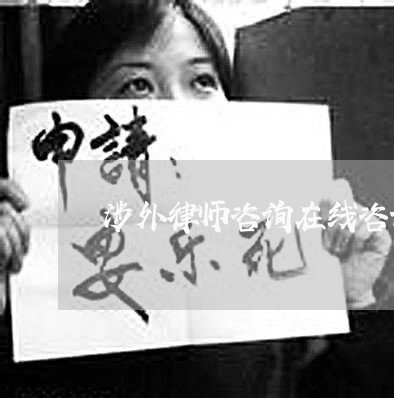 申請：
涉外律师咨询在线咨
安乐死